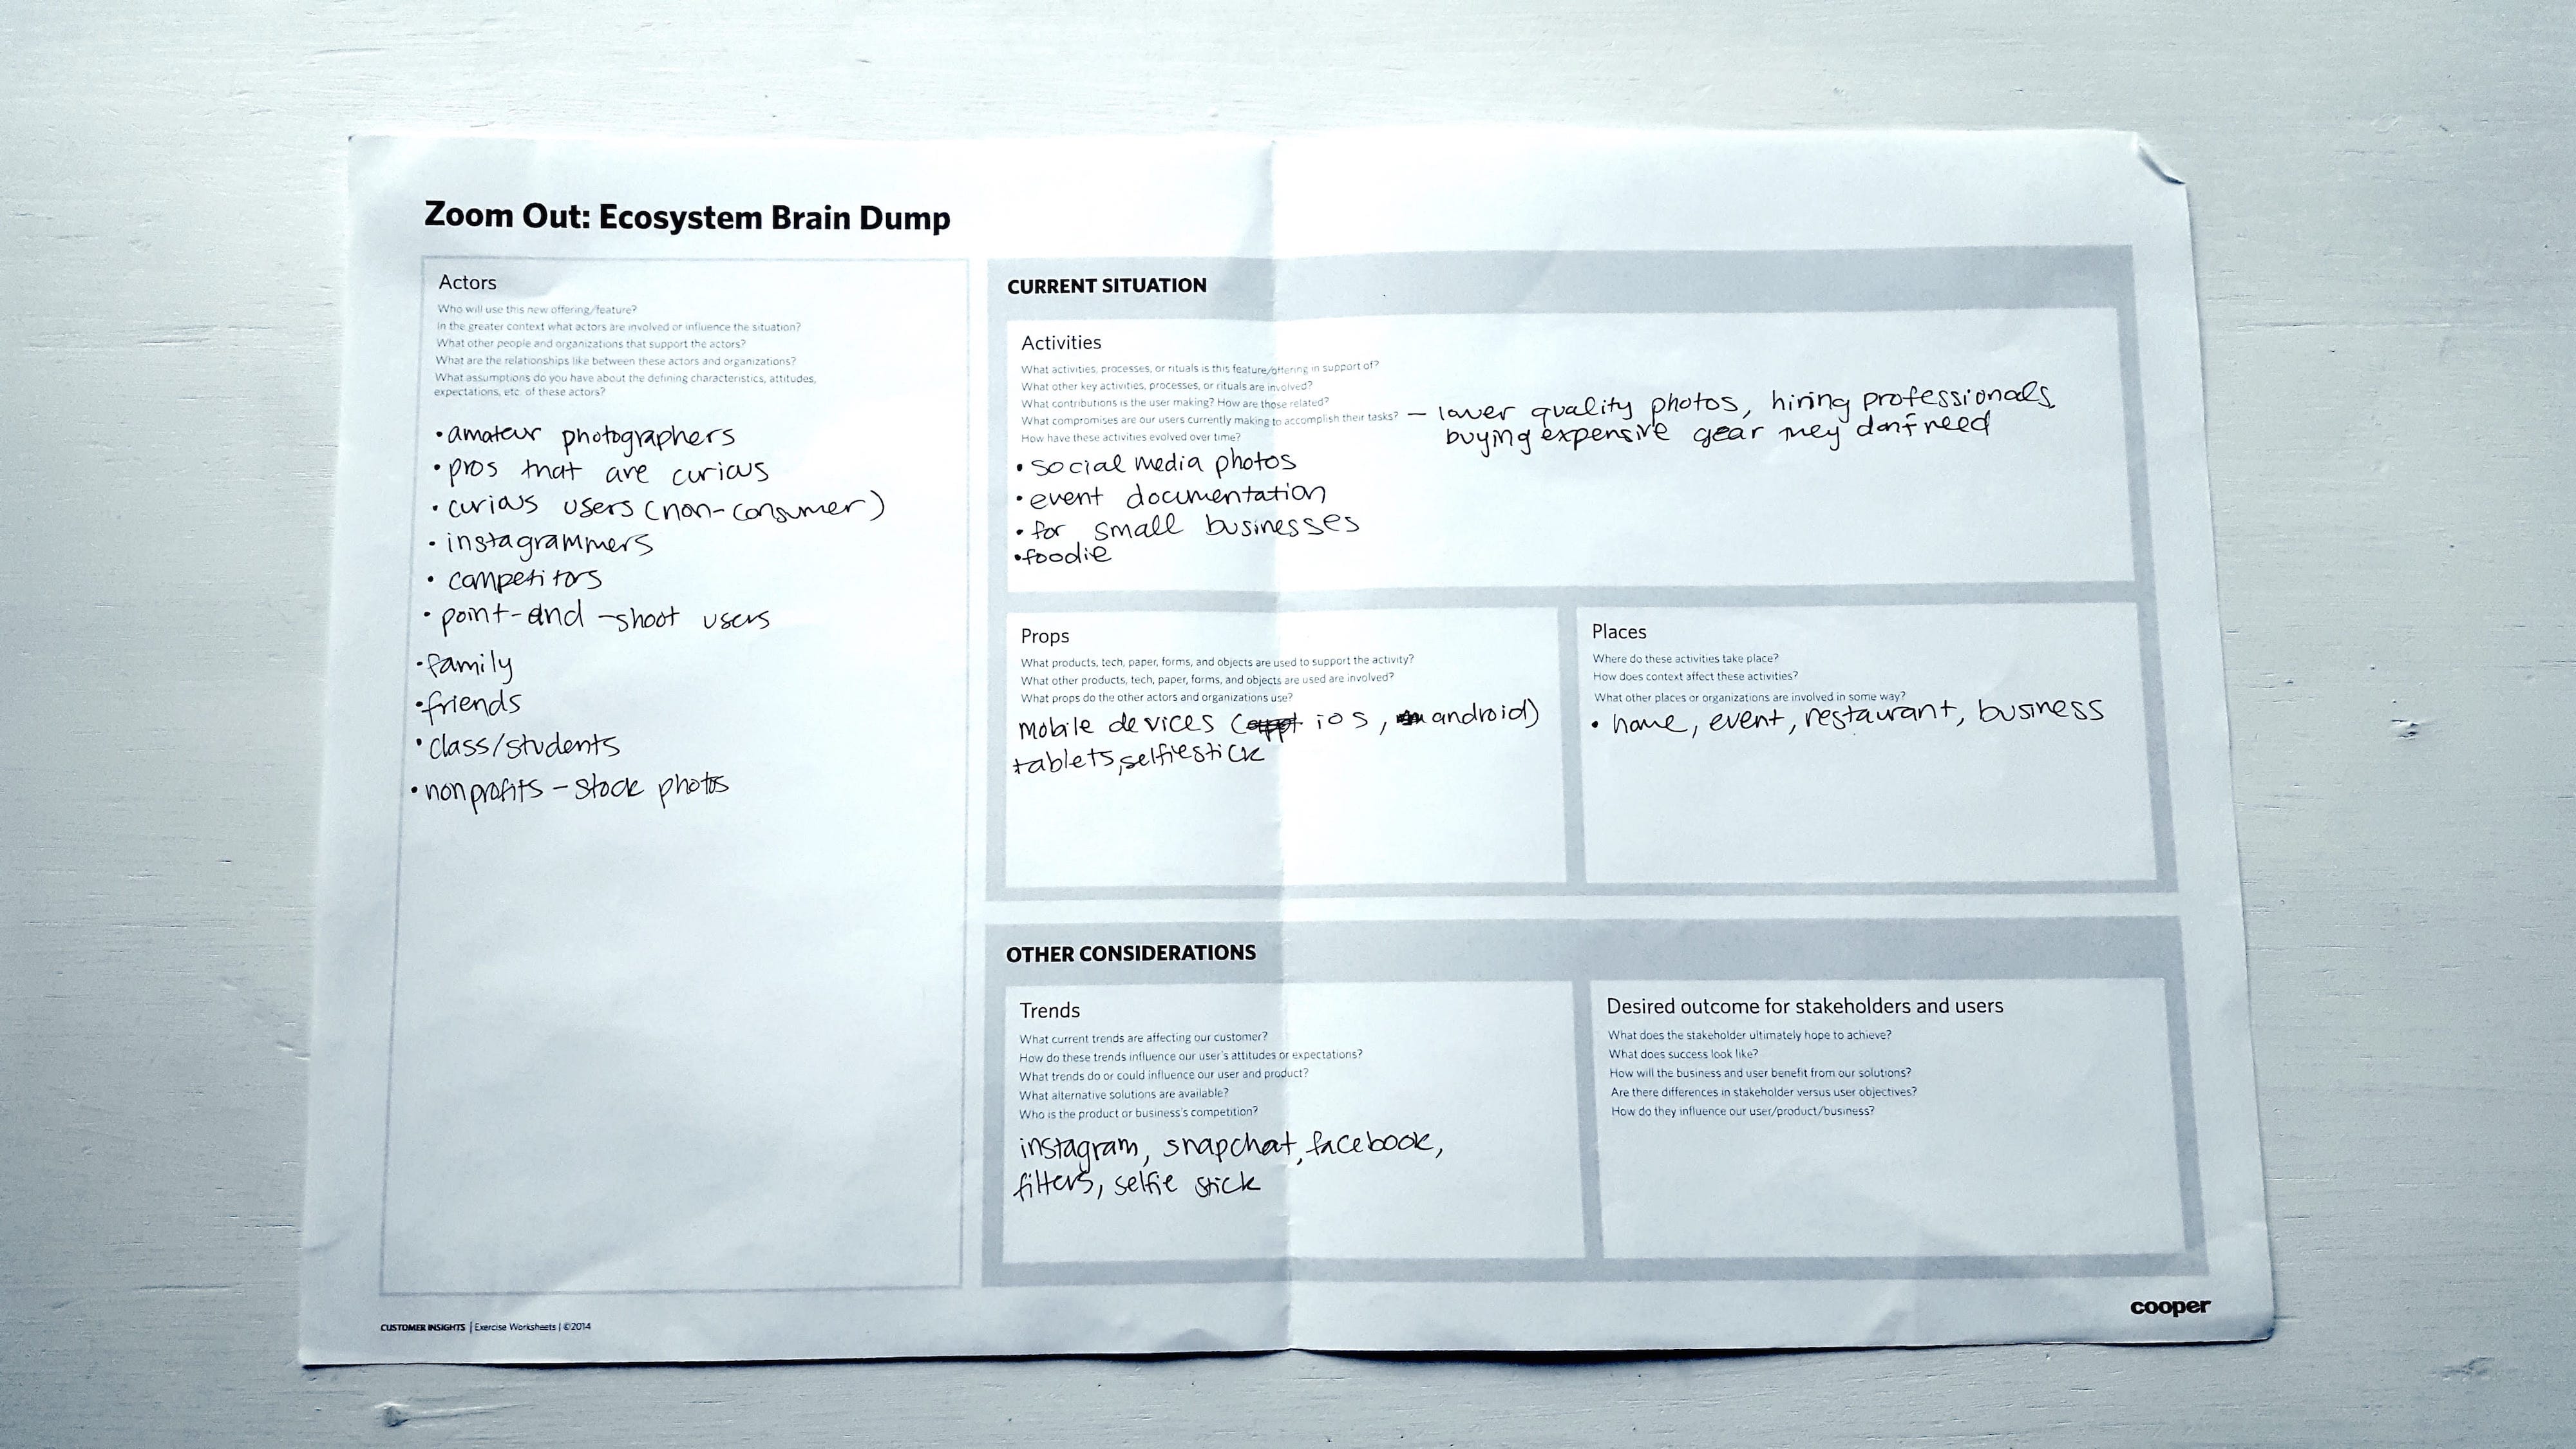 Zoom Out: Ecosystem Brain Dump
Actors
Who will use this new offering/feature?
In the greater context what actors are involved or influence the situation?
What other people and organizations that support the actors?
What are the relationships like between these actors and organizations?
What assumptions do you have about the defining characteristics, attitudes,
expectations, etc. of these actors?
• amateur photographers
• pros that are curious
• curious users (non-consumer)
• instagrammers
• competitors
• point-and-shoot users
• family
• friends
• class/students
• nonprofits - stock photos
CURRENT SITUATION
Activities
What activities, processes, or rituals is this feature/offering in support of?
What other key activities, processes, or rituals are involved?
What contributions is the user making? How are those related?
What compromises are our users currently making to accomplish their tasks? — lower quality photos, hiring professionals,
How have these activities evolved over time? buying expensive gear they don't need
• social media photos
• event documentation
• for small businesses
• foodie
Props
What products, tech, paper, forms, and objects are used to support the activity?
What other products, tech, paper, forms, and objects are used are involved?
What props do the other actors and organizations use?
mobile devices ( ios, android)
tablets, selfiestick
Places
Where do these activities take place?
How does context affect these activities?
What other places or organizations are involved in some way?
• home, event, restaurant, business
OTHER CONSIDERATIONS
Trends
What current trends are affecting our customer?
How do these trends influence our user's attitudes or expectations?
What trends do or could influence our user and product?
What alternative solutions are available?
Who is the product or business's competition?
instagram, snapchat, facebook,
filters, selfie stick
Desired outcome for stakeholders and users
What does the stakeholder ultimately hope to achieve?
What does success look like?
How will the business and user benefit from our solutions?
Are there differences in stakeholder versus user objectives?
How do they influence our user/product/business?
CUSTOMER INSIGHTS | Exercise Worksheets | ©2014
cooper